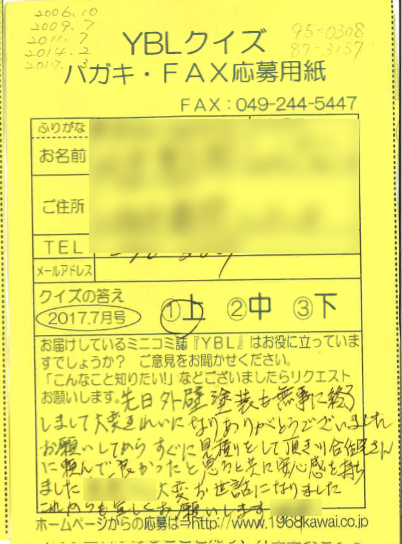 2006.10
2009.7
2011.7
2014.2
2017.3
95-0308
87-3157
YBLクイズ
ハガキ・FAX応募用紙
FAX:049-244-5447
ふりがな
お名前
ご住所
TEL
メールアドレス
クイズの答え
2017.7月号
①上 ②中 ③下
お届けしているミニコミ誌『YBL』はお役に立っていま
すでしょうか? ご意見をお聞かせください。
「こんなこと知りたい!」などございましたらリクエスト
お願いします。先日外壁塗装も無事に終了
しまして大変きれいになりありがとうございました
お願いしてからすぐに見積りをして頂き川合住建さん
に頼んで良かったと思うと共に安心感を持ち
ました 大変お世話になりました
これからも宜しくお願いします
ホームページからの応募は→http://www.1968kawai.co.jp